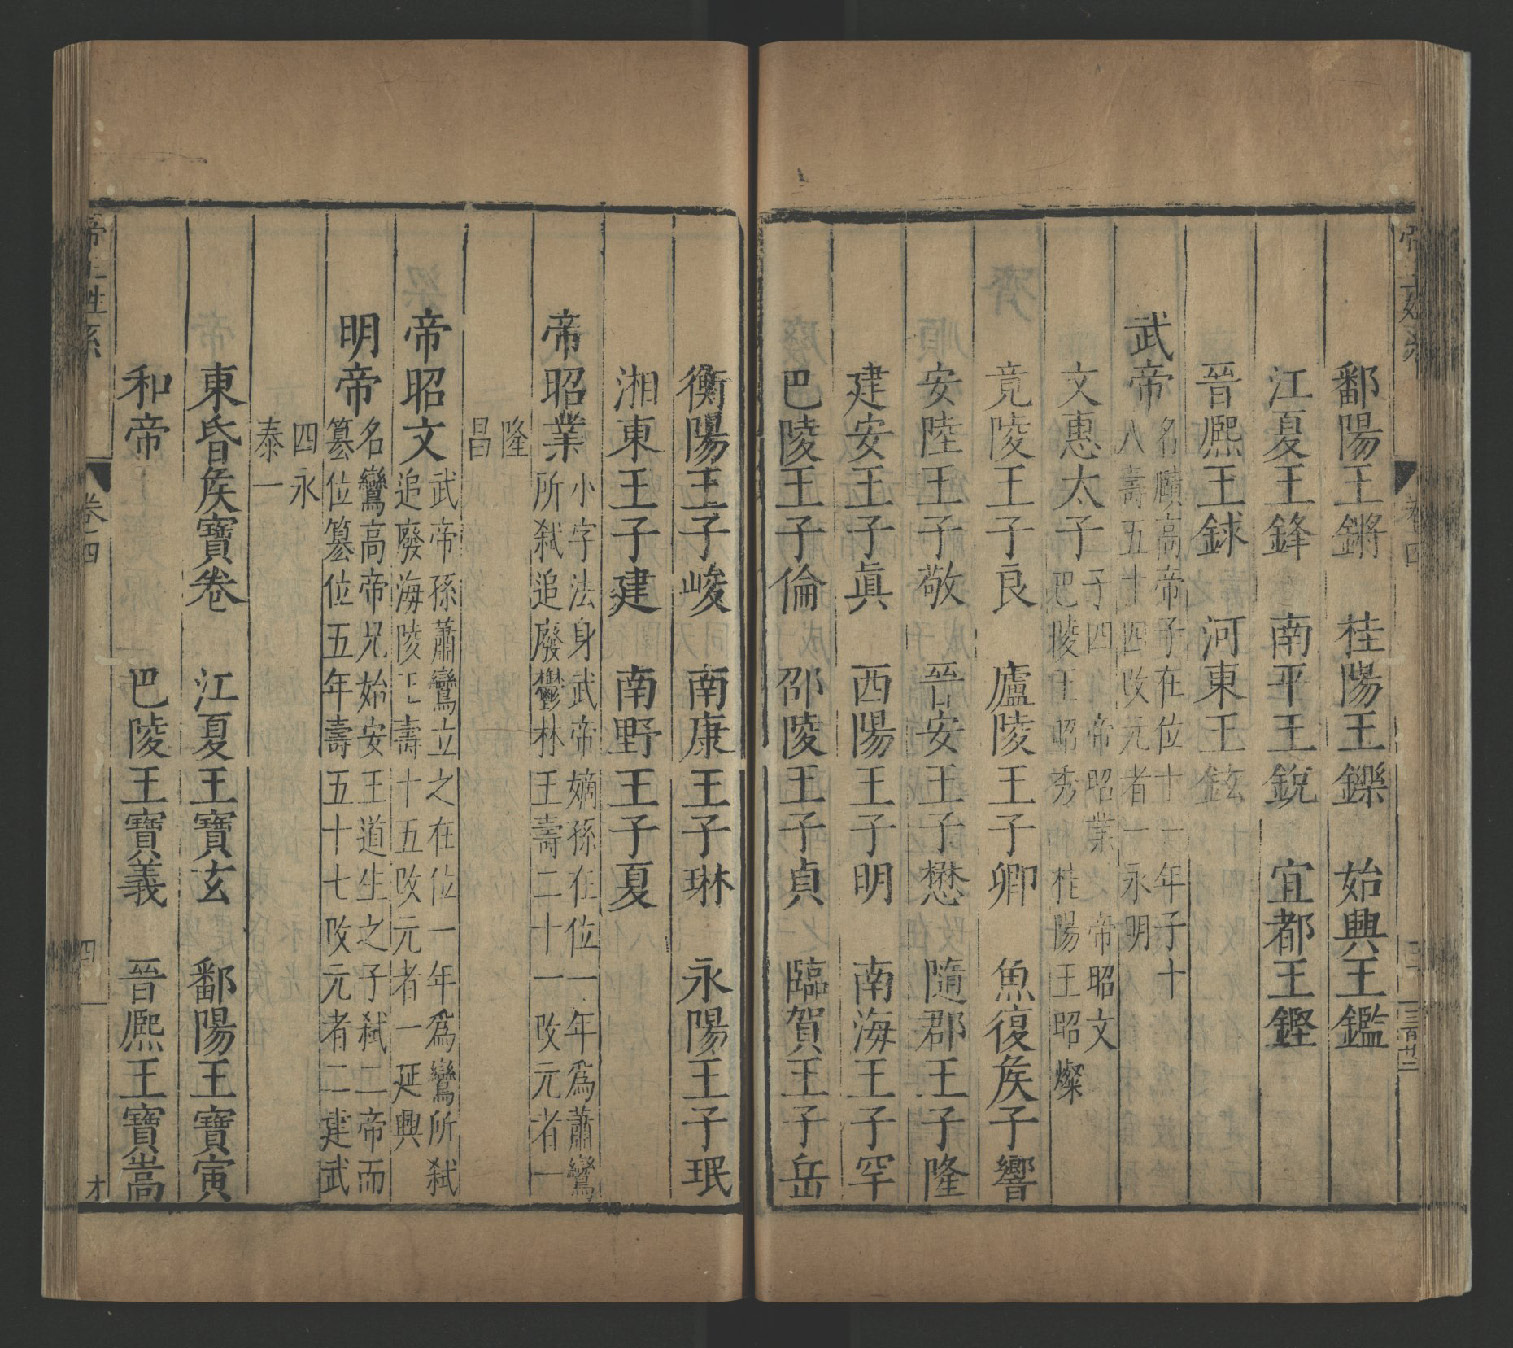 鄱陽王鏘　桂陽王鑠　始興王鑑
江夏王鋒　南平王銳　宜都王鏗
晉熈王銶　河東王鉉
武帝
名賾高帝子在位十一年子十
八壽五十四攺元者一永明
文惠太子
子四　帝昭業　帝昭文
巴陵王昭秀　桂陽王昭燦
竟陵王子良　廬陵王子卿　魚復矦子響
安陸王子敬　晉安王子懋　隨郡王子隆
建安王子眞　西陽王子明　南海王子罕
巴陵王子倫　邵陵王子貞　臨賀王子岳
衡陽王子峻　南康王子琳　永陽王子珉
湘東王子建　南野王子夏
帝昭業
小字法身武帝嫡孫在位一年為蕭鸞
所弑追廢鬱林王壽二十一攺元者一
隆
昌
帝昭文
武帝孫蕭鸞立之在位一年為鸞所弑
追廢海陵王壽十五攺元者一延興
明帝
名鸞高帝兄始安王道生之子弑二帝而
簒位簒位五年壽五十七攺元者二建武
四永
泰一
東昏矦寶卷　江夏王寶玄　鄱陽王寶寅
和帝　巴陵王寶義　晉熈王寶嵩
卷四
四
才